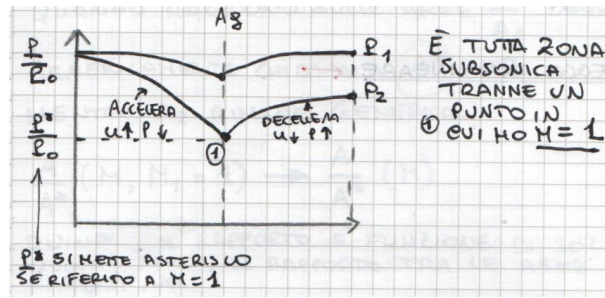 Ag
P/P₀
P₁
P₂
ACCELERA
u↑ P↓
DECELERA
u↓ P↑
P*/P₀
①
È TUTTA ZONA
SUBSONICA
TRANNE UN
PUNTO IN
① CUI HO M = 1
P* SI METTE ASTERISCO
SE RIFERITO A M=1